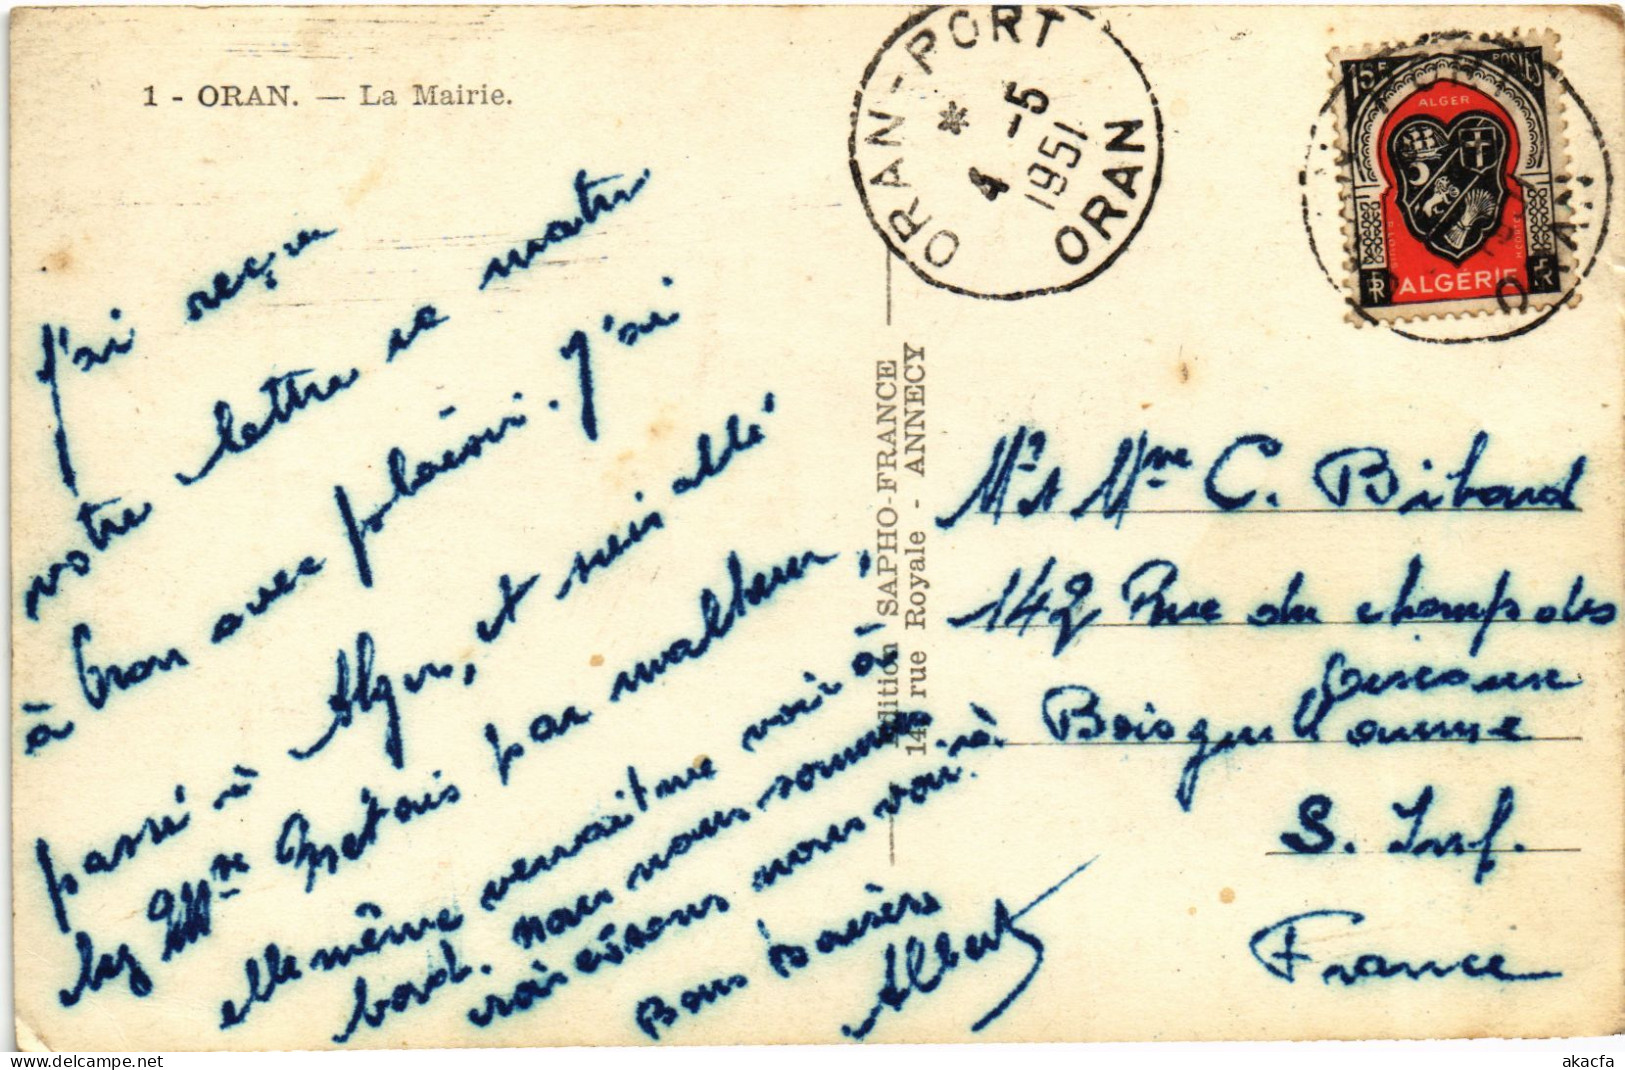 1 - ORAN. — La Mairie.
ORAN-PORT
* 4 -5
1951
ORAN
15F POSTES
ALGER
RF ALGÉRIE RF
ORAN
J'ai reçu
votre lettre ce matin
à bron avec plaisir. J'ai
passé à Alger, et suis allé
chez Mme Métais par malheur,
elle même venait me voir à
bord. nous nous sommes
croisés sans nous voir.
Bons baisers
Albert
Edition SAPHO-FRANCE
14, rue Royale - ANNECY
Mr et Mme C. Bibard
142 Rue du champs des
oiseaux
à Boisguillaume
S. Inf.
France
akacfa